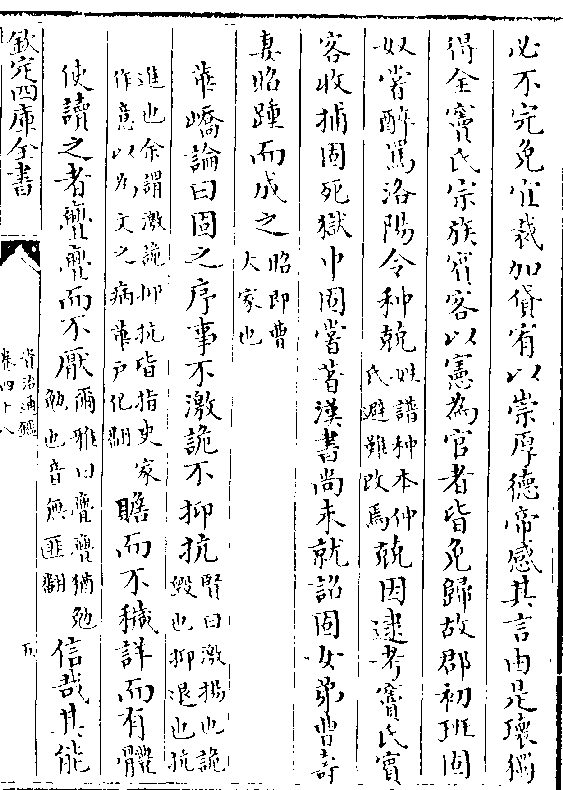 必不完免宜裁加貸宥以崇厚德帝感其言由是瓌獨
得全竇氏宗族賓客以憲為官者皆免歸故郡初班固
奴嘗醉罵洛陽令种兢姓譜种本仲氏避難改焉兢因逮考竇氏賓
客收捕固死獄中固嘗著漢書尚未就詔固女弟曹壽
妻昭踵而成之昭即曹大家也
華嶠論曰固之序事不激詭不抑抗賢曰激揚也詭毀也抑退也抗
進也余謂激詭抑抗皆指史家作意以為文之病華戶化翻贍而不穢詳而有體
使讀之者亹亹而不厭爾雅曰亹亹猶勉勉也音無匪翻信哉其能
欽定四庫全書
資治通鑑
卷四十八
五